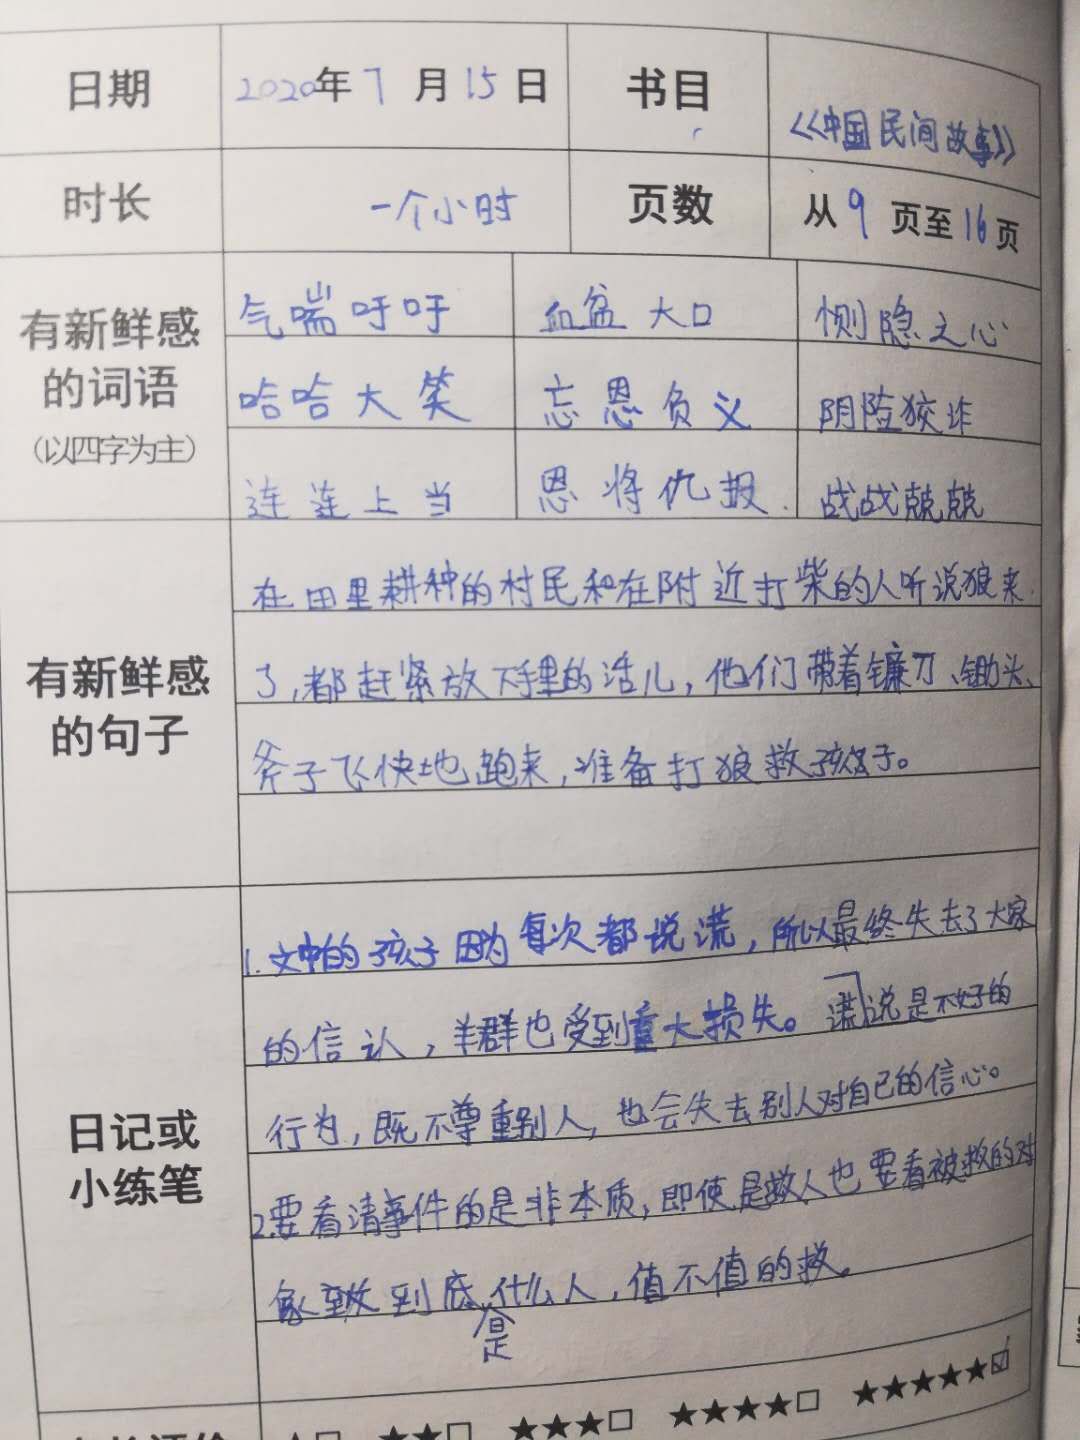 日期 2020年7月15日 书目 《中国民间故事》
时长 一个小时 页数 从9页至16页
有新鲜感的词语(以四字为主)
气喘吁吁 血盆大口 恻隐之心
哈哈大笑 忘恩负义 阴险狡诈
连连上当 恩将仇报 战战兢兢
有新鲜感的句子
在田里耕种的村民和在附近打柴的人听说狼来
了,都赶紧放下手里的活儿,他们带着镰刀、锄头、
斧子飞快地跑来,准备打狼救孩子。
日记或小练笔
1.文中的孩子因为每次都说谎,所以最终失去了大家
的信认,羊群也受到重大损失。谎说是不好的
行为,既不尊重别人,也会失去别人对自己的信心。
2.要看清事件的是非本质,即使是救人也要看被救的对
象到底是什么人,值不值的救。
★★□ ★★★□ ★★★★□ ★★★★★☑